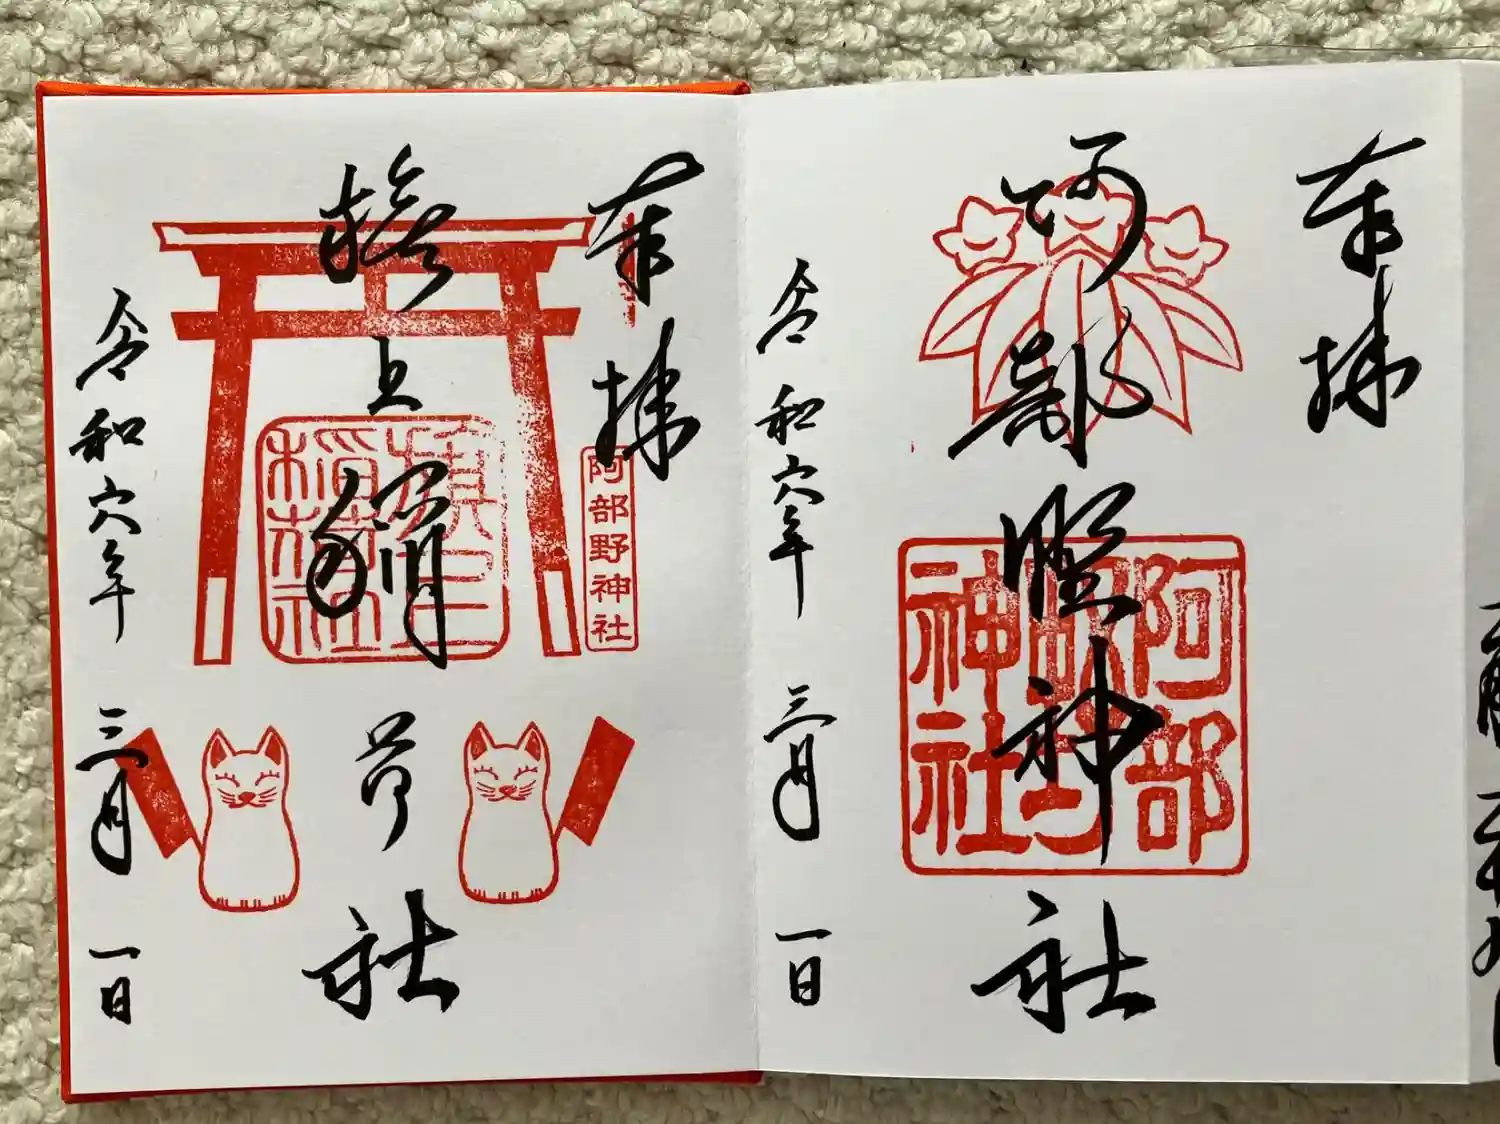 奉拝
阿部野神社
阿部
野
神社
令和六年三月一日
奉拝
阿部野神社
旗上稲荷社
旗上
稲荷社
令和六年三月一日